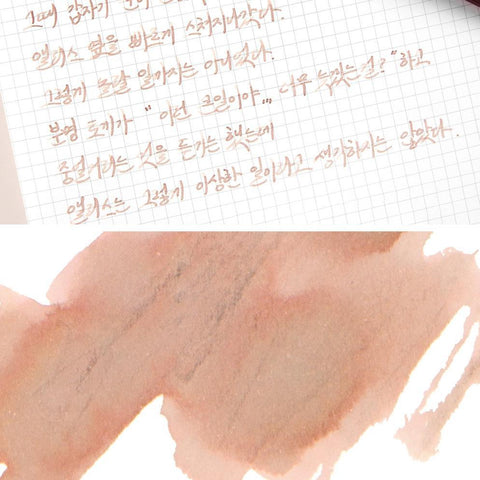 그때 갑자기 눈이
앨리스 옆을 빠르게 스쳐지나갔다.
그렇게 놀랄 일까지는 아니었다.
분명 토끼가 "이런 큰일이야... 너무 늦겠는걸?" 하고
중얼거리는 것을 듣기는 했는데
앨리스는 그렇게 이상한 일이라고 생각하지는 않았다.